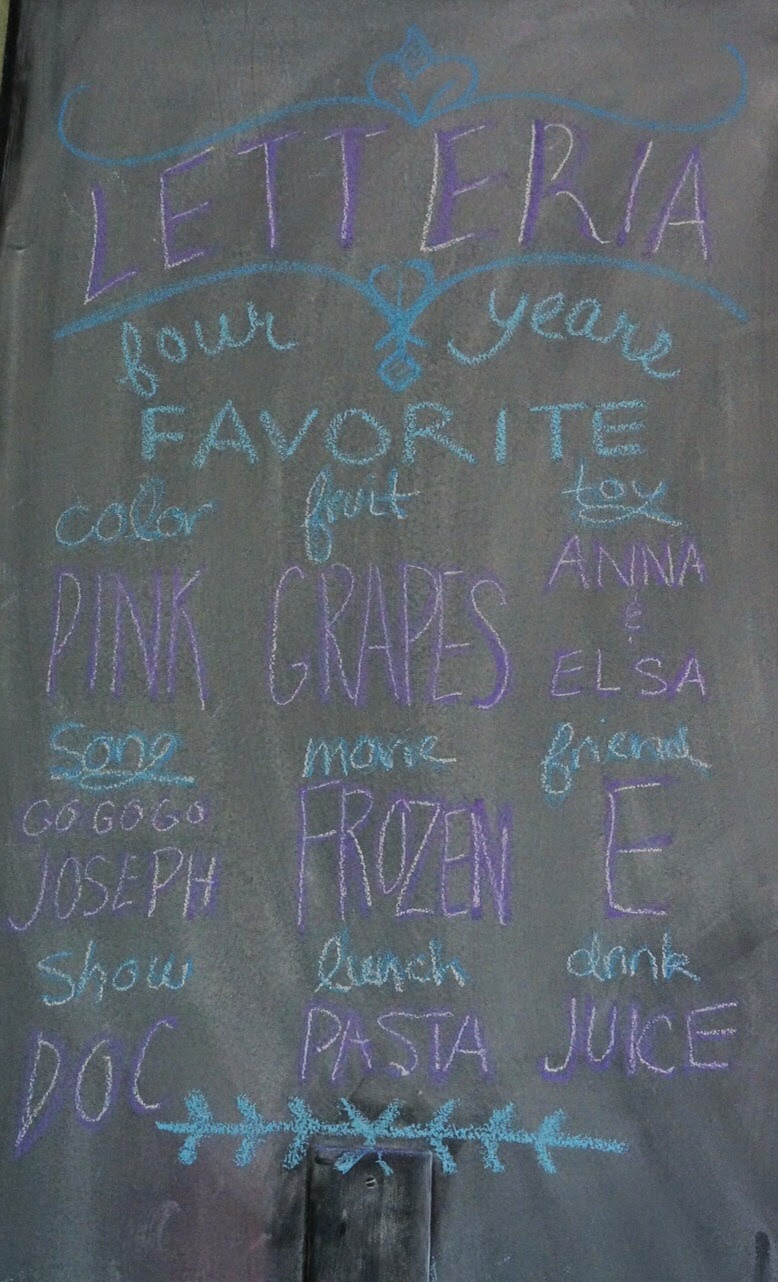 LETTERIA
four years
FAVORITE
color fruit toy
PINK GRAPES ANNA & ELSA
song movie friend
GO GO GO JOSEPH FROZEN E
show lunch drink
DOC PASTA JUICE